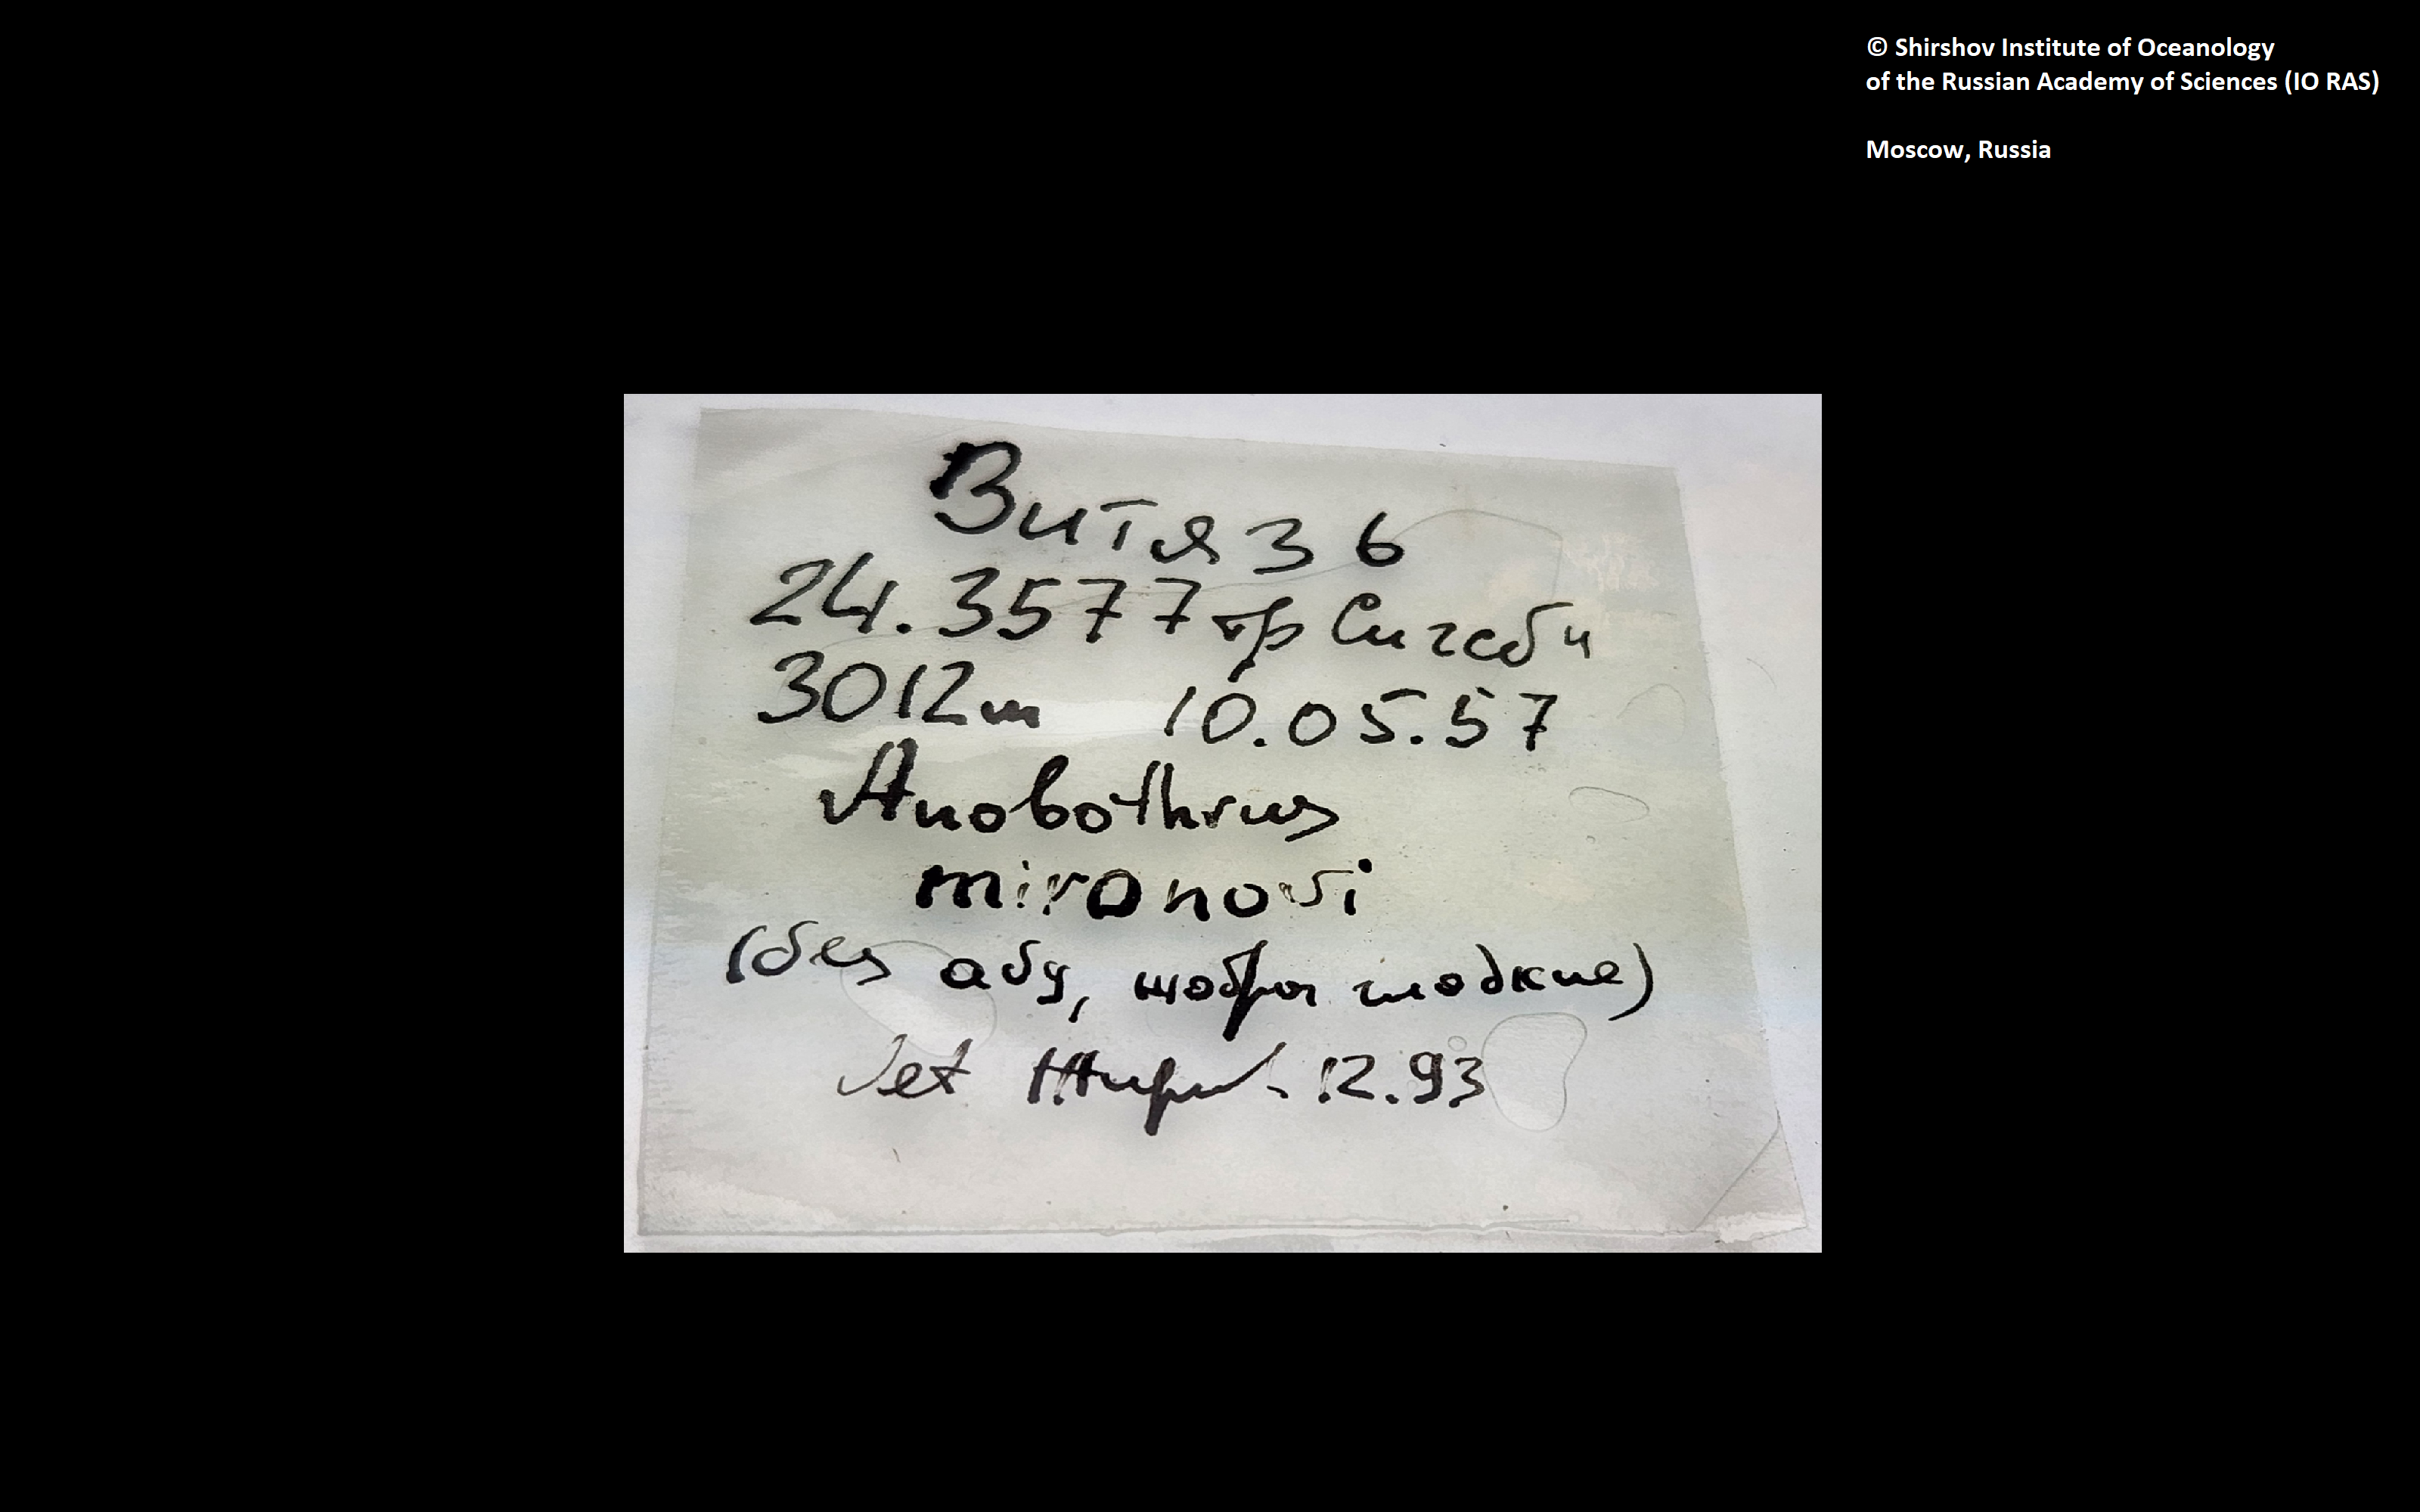 © Shirshov Institute of Oceanology
of the Russian Academy of Sciences (IO RAS)
Moscow, Russia
Витязь
24.3577 тр Сигсби
3012м 10.05.57
Anobothrus
mironovi
(без абу, жабры гладкие)
Det 12.93